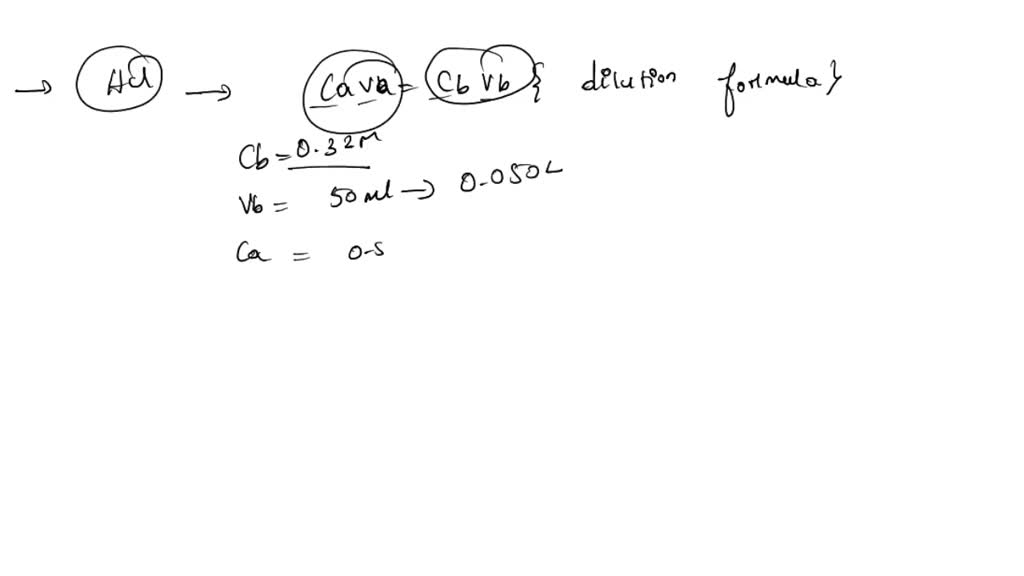 → HCl → CaVa = CbVb { dilution formula }
Cb = 0.32M
Vb = 50 ml → 0.050L
Ca = 0.5